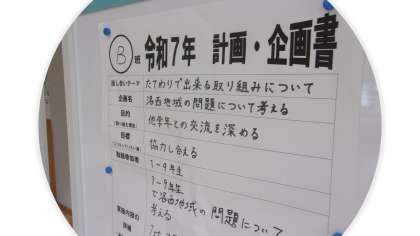 B班 令和7年 計画・企画書
話し合いテーマ たてわりで出来る取り組みについて
企画名 洛西地域の問題について考える
目的 他学年との交流を深める
目標 協力し合える
取組参加者 1~9年生
1~9年生
で洛西地域の問題について
実施内容の 考える
詳細